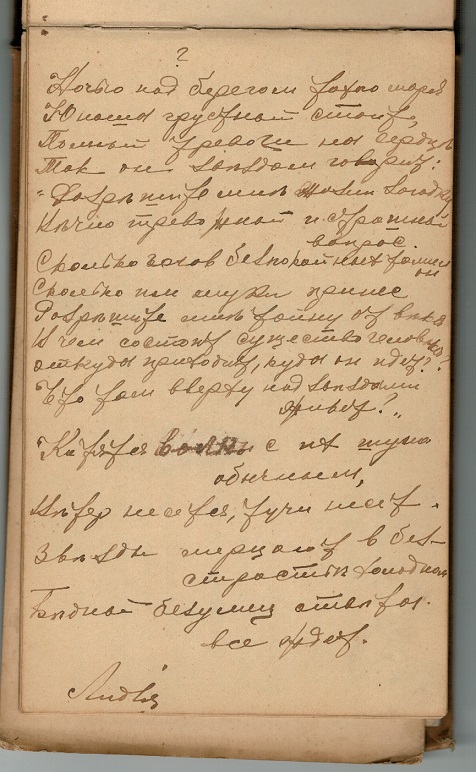 ?
Ночью над берегом тихто моря
Юноша грустный стоит,
Полный тревоги на сердце
Так он звѣздам говорит:
"Разрѣшите мнѣ жизни загадку
Вѣчно тревожной и страшный
вопрос.
Сколько голов безпокойных томил
он
Сколько им муки принес
Разрѣшите мнѣ тайну от вѣка
В чем состоит существо человѣка
откуда приходит, куда он идет?
Кто там вверху над звѣздами
живет?"
Катятся волны с их шумом
обычным,
Вѣтер несется, тучи несет.
Звѣзды мерцают в без-
страстьи холодном
Бѣдный безумец отвѣта
все ждет.